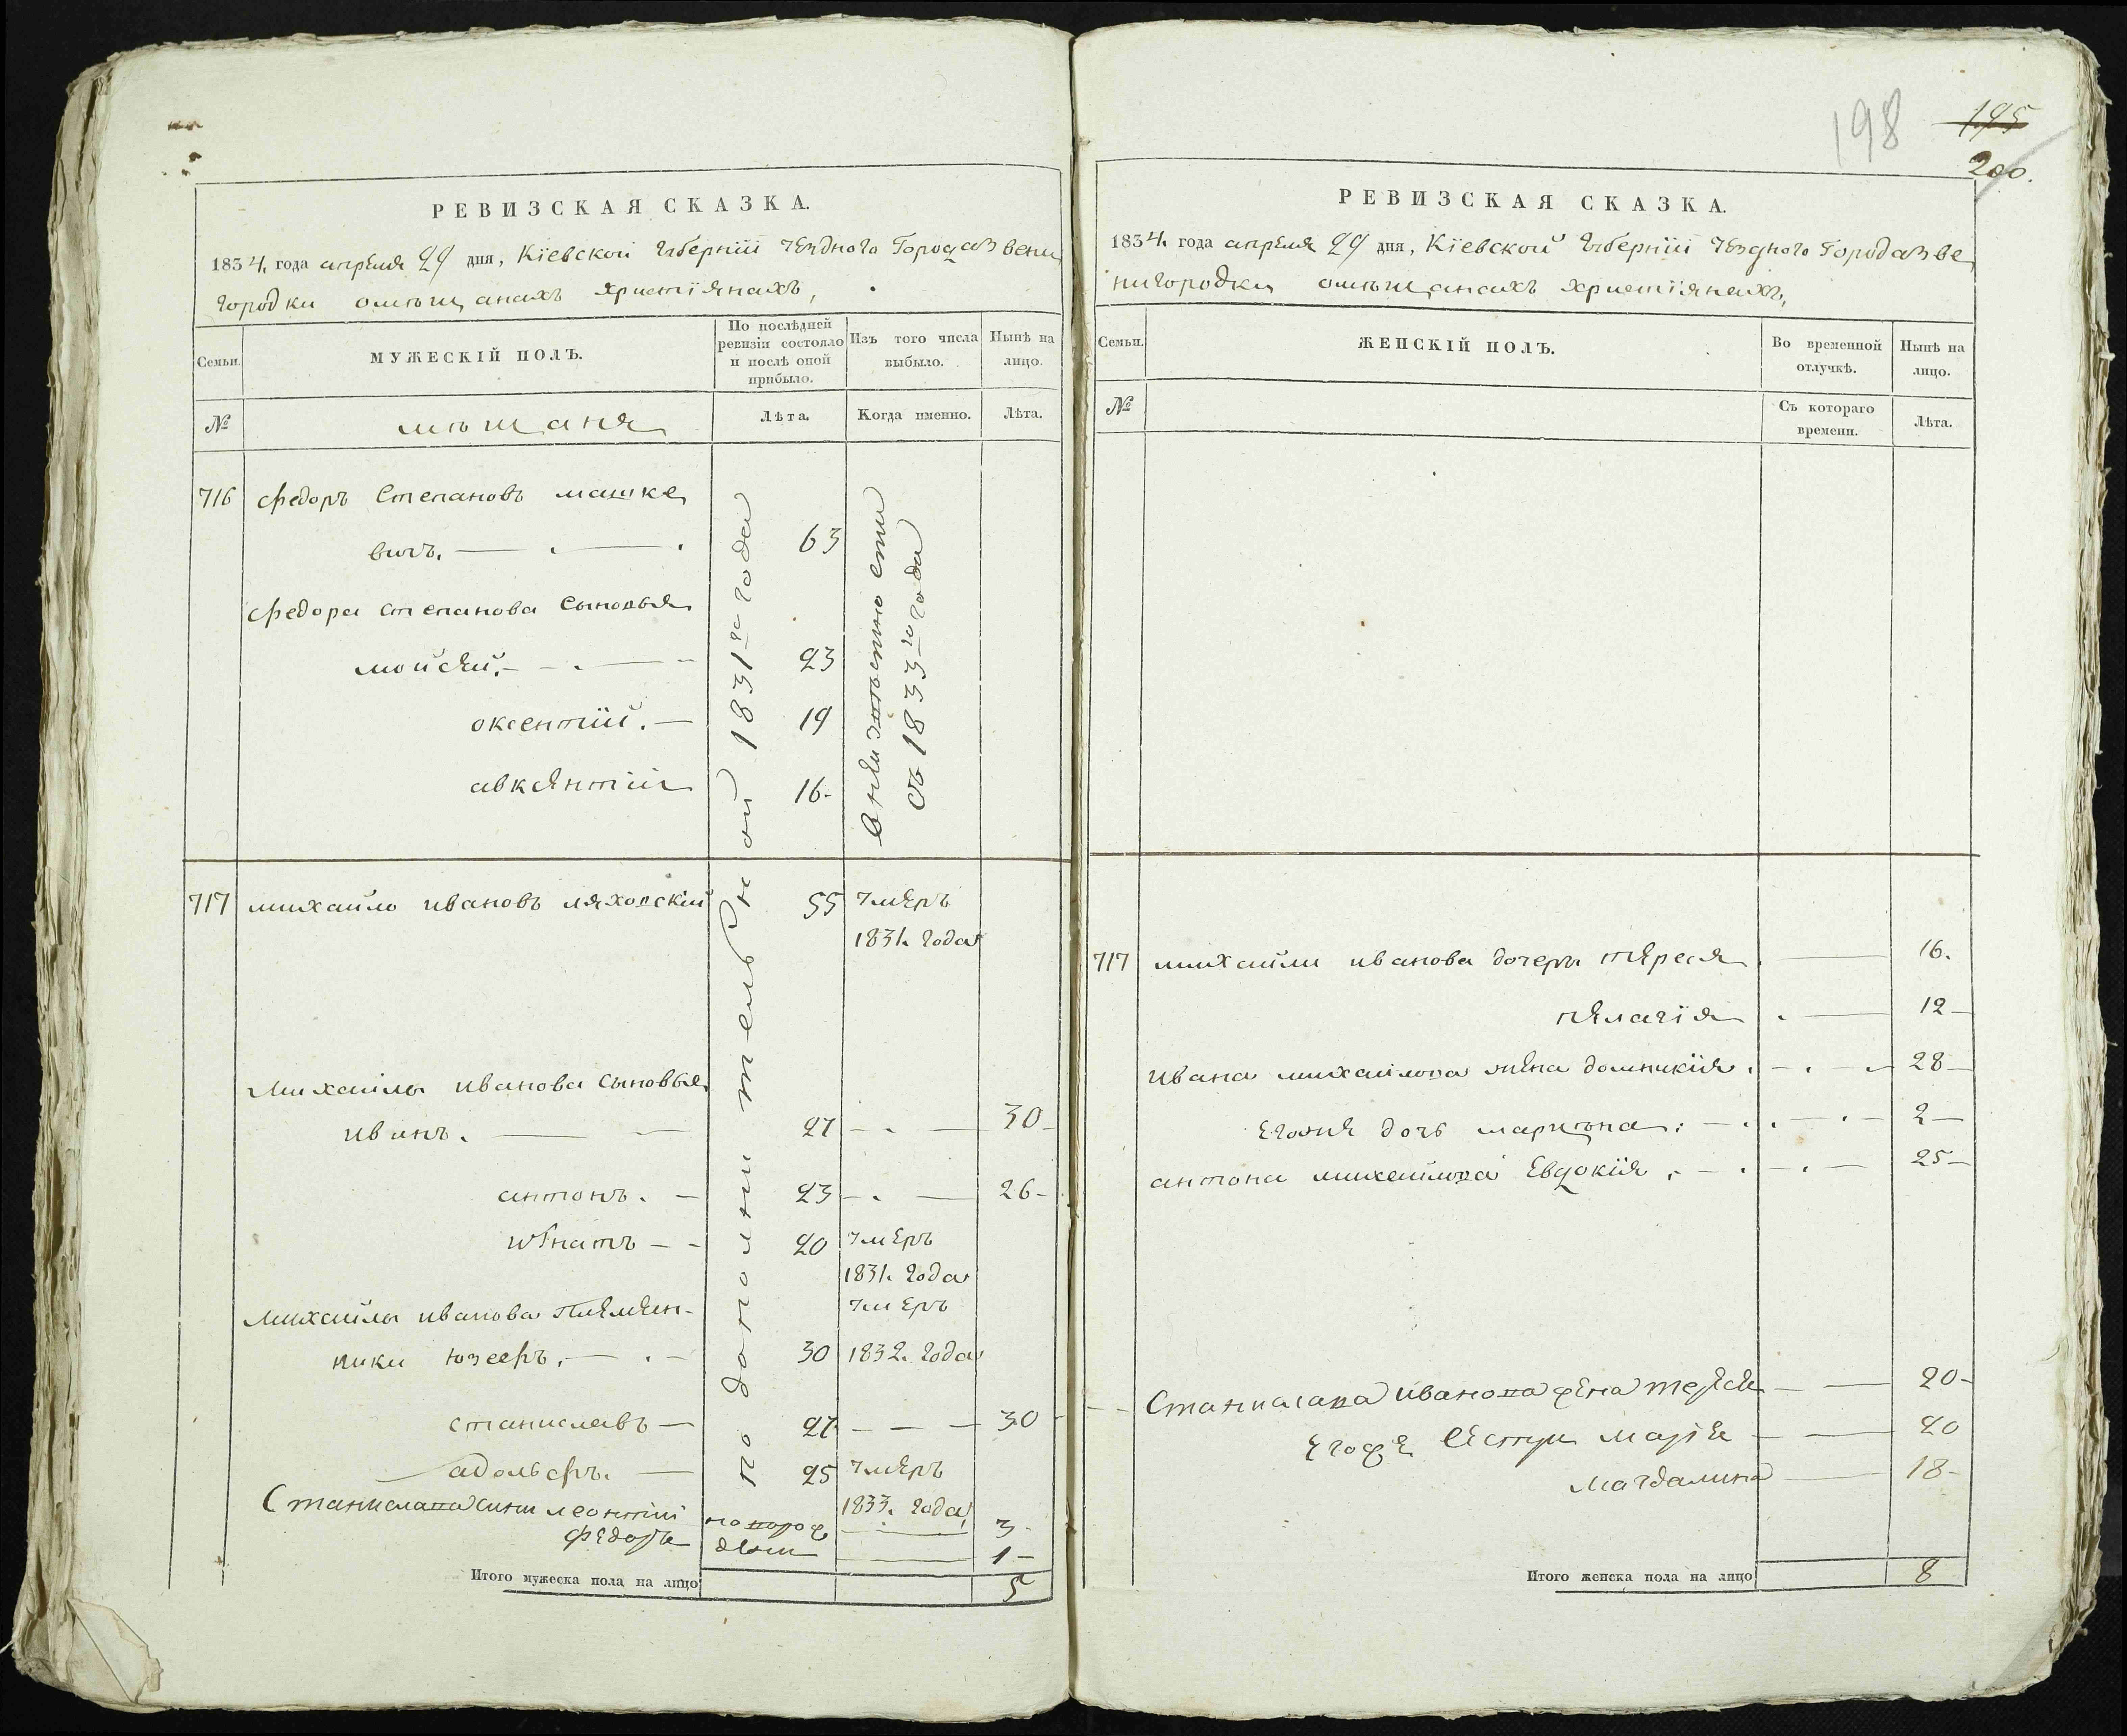 РЕВИЗСКАЯ СКАЗКА.
1834. года апреля 29 дня, Кіевской Губерніи уездного Города Звени
городки о мѣщанахъ христіянахъ,
Семьи.
МУЖЕСКІЙ ПОЛЪ.
По послѣдней ревизіи состояло и послѣ оной прибыло.
Изъ того числа выбыло.
Нынѣ на лицо.
№
мѣщаня
Лѣта.
Когда именно.
Лѣта.
по дополнительной 1831го года
716 Федоръ Степановъ машке
вичъ. 63
Федора степанова сыновья
мойсей. 23
оксентій. 19
авксентій 16
въ 1833го года
717 михайло ивановъ ляховскій 55 умеръ
1831. года
Михайлы иванова сыновья
иванъ. 27 30
антонъ. 23 26
игнатъ 20 умеръ
1831. года
Михайлы иванова племен-
ники юзефъ. 30 умеръ 1832. года
станиславъ 27 30
адольфъ. 25 умеръ
1833. года
Станислава сини леонтіи 3
федоръ 1
Итого мужеска пола на лицо 5
198
195
200.
РЕВИЗСКАЯ СКАЗКА.
1834. года апреля 29 дня, Кіевской Губерніи уездного Города Зве
нигородки о мѣщанахъ христіянахъ,
Семьи.
ЖЕНСКІЙ ПОЛЪ.
Во временной отлучкѣ.
Нынѣ на лицо.
№
Съ котораго времени.
Лѣта.
717 михайлы иванова дочери тереся 16.
пелагія 12
ивана михайлова жена домникія. 28
егоже дочь марцѣна. 2
антона михайлова Евдокія. 25
Станислава иванова жена тереся 20
егоже сестри марія 20
магдалина 18
Итого женска пола на лицо 8